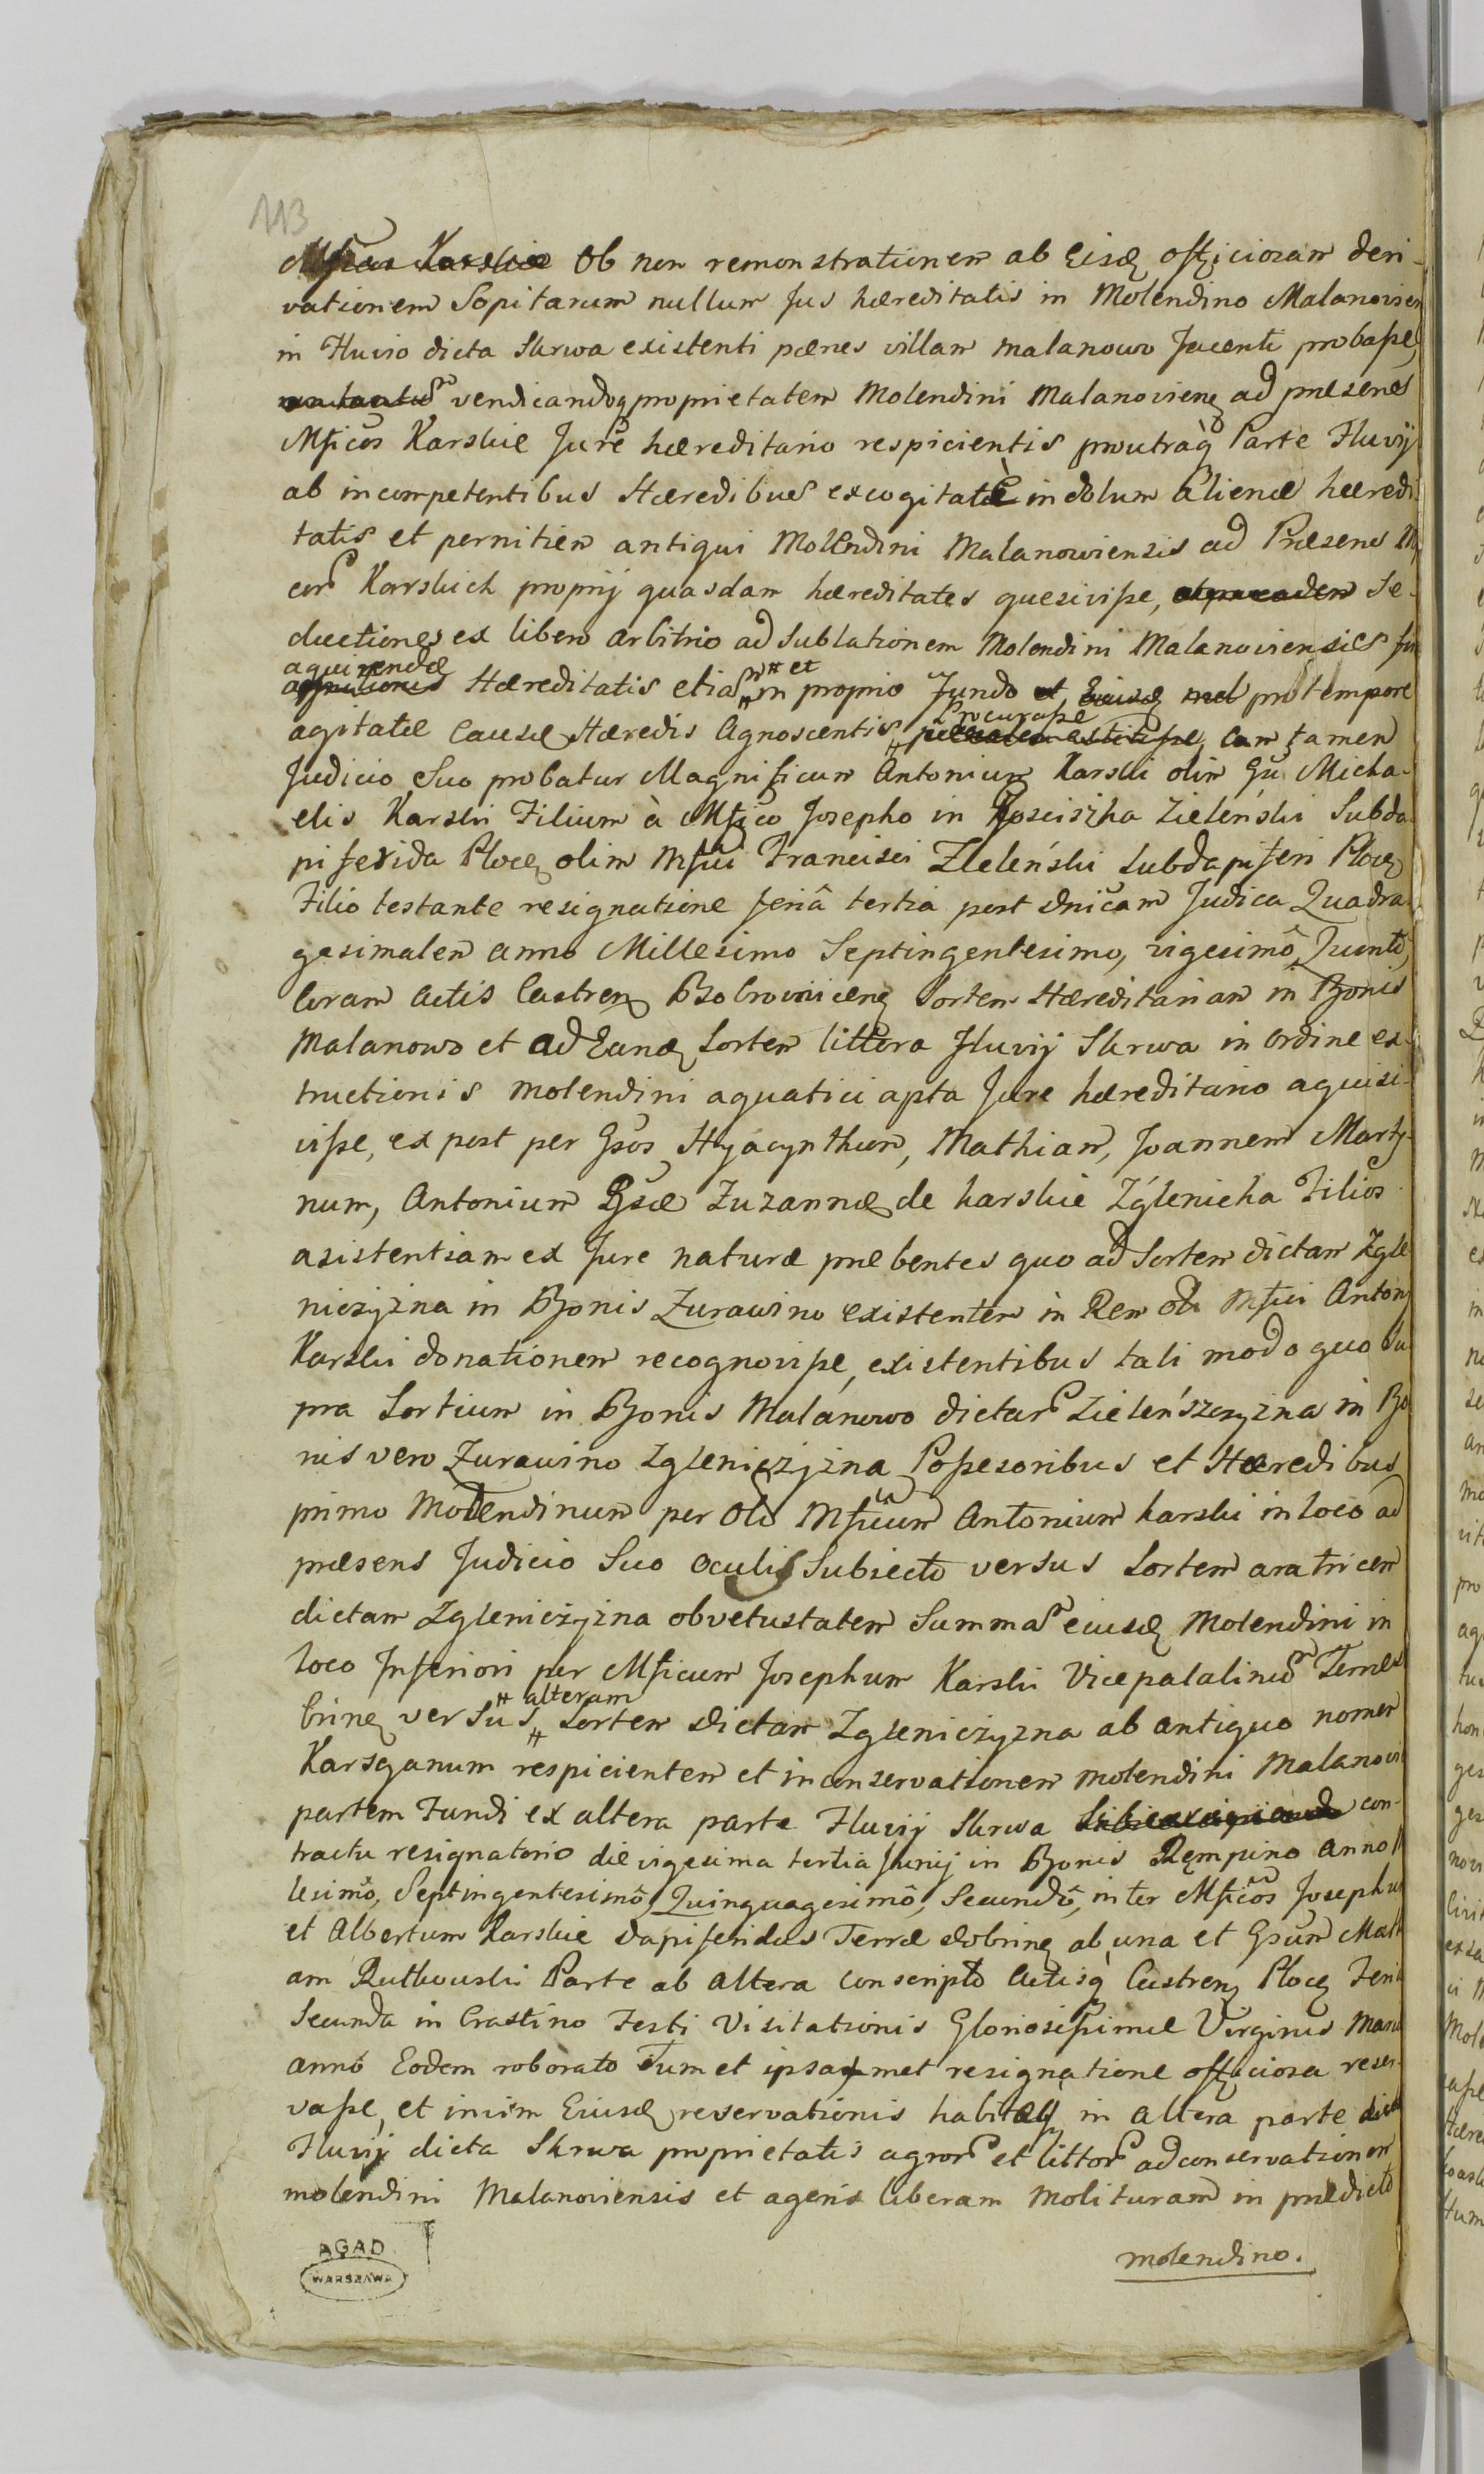 113
Ob non remonstrationem ab Eisd officiosam deri-
vationem Sopitarum nullum Jus hæreditatis in Molendino Malanovien
in Fluvio dicta Skrwa existenti pænes villam Malanowo Jacenti probaße,
vendicandoq proprietatem Molendini Malanoviens ad præsens
Mficos Karskie Jure hæreditario respicientis proutraq Parte Fluvij
ab incompetentibus Hæredibus excogitatæ in dolum Alienæ hæredi
tatis et pernitiem antiqui Molendini Malanowiensis ad Præsens M
cor Karskich proprij quasdam hæreditates quesiviße, Se-
ductiones ex libero arbitrio ad Sublationem Molendini Malanoviensis
aquirendæ
Hæreditatis etiam in et proprio Fundo pro tempore
agitatæ Causæ Hæredis Agnoscentis Procuraße Cum tamen
Judicio Suo probatur Magnificum Antonium Karski olim Gu Micha-
elis Karski Filium à Mfico Josepho in Kosciszka Zieleński Subda-
piferida Ploce olim Mfici Francisci Zieleński Subdapiferi Ploce
Filio testante resignatione feriâ tertia post dnicam Judica Quadra-
gesimalem anno Millesimo Septingentesimo, vigesimô Quintô,
Coram Actis Castren Bobrovnicens Sortem Hæreditariam in Bonis
Malanowo et ad Eand Sortem littora Fluvij Skrwa in ordine ex-
tructionis Molendini aquatici apta Jure hæreditario aquisi-
viße, ex post per Gsos Hyacynthum, Mathiam, Joannem Marty-
num, Antonium Gsæ Zuzannæ de Karskie Zglenicka Filios
asistentiam ex Jure naturæ præbentes quo ad Sortem dictam Zgle
niczyzna in Bonis Zurawino existentem in Rem oli Mfici Anton
Karski donationem recognoviße, existentibus tali modo quo Su
pra Sortium in Bonis Malanowo dictar Zieleńszczyzna in Bo
nis vero Zurawino Zgleniczyzna Poßesoribus et Hæredibus
primo Molendinum per oli Mficum Antonium Karski in loco ad
præsens Judicio Suo oculis Subiecto versus Sortem aratricem
dictam Zgleniczyzna ob vetustatem Summam eiusd Molendini in
loco Inferiori per Mficum Josephum Karski Vicepalatinum Terræ
alteram
brine versus Sortem dictam Zgleniczyzna ab antiquo nomen
Karsganum respicientem et in conservationem molendini Malanovi
partem Fundi ex altera parte Fluvij Skrwa con-
tractu resignatorio die vigesima tertia Junij in Bonis Rempino Anno
lesimô, Septingentesimô, Quinquagesimô, Secundô, inter Mficos Josephum
et Albertum Karskie Dapiferidas Terræ Dobrine ab una et Gsum Math
am Rutkowski Parte ab altera conscripto Actisq Castren Ploce Feria
Secunda in Crastino Festi Visitationis Gloriosißimæ Virginis Mariæ
anno Eodem roborato Tum et ipsamet resignatione officiosa reser-
vaße, et in vim Eiusd reservationis habitæq in altera parte dictæ
Fluvij dicta Skrwa proprietatis agror et littor ad conservationem
molendini Malanoviensis et agens liberam Molituram in prædicto
molendino.
AGAD
WARSZAWA